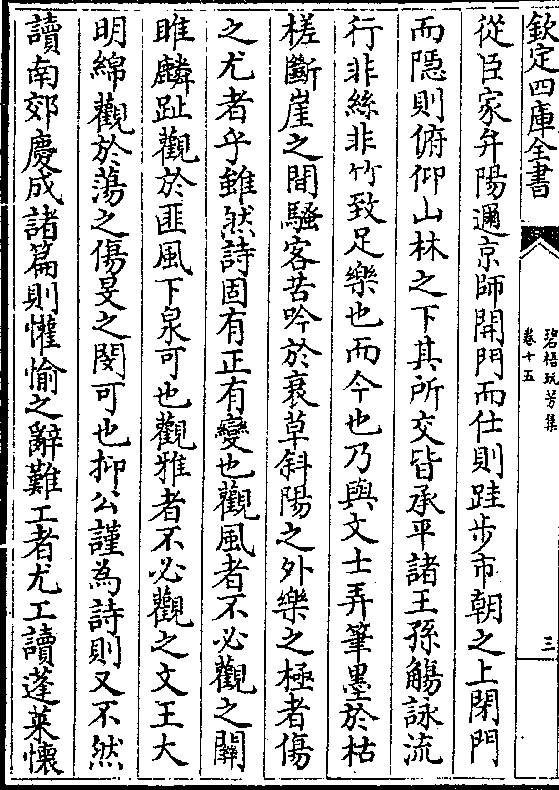 欽定四庫全書
碧梧玩芳集
卷十五
三
從臣家弁陽邇京師開門而仕則跬步市朝之上閉門
而隱則俯仰山林之下其所交皆承平諸王孫觴詠流
行非絲非竹致足樂也而今也乃與文士弄筆墨於枯
槎斷崖之間騷客苦吟於衰草斜陽之外樂之極者傷
之尤者乎雖然詩固有正有變也觀風者不必觀之關
雎麟趾觀於匪風下泉可也觀雅者不必觀之文王大
明綿觀於蕩之傷旻之閔可也抑公謹為詩則又不然
讀南郊慶成諸篇則懽愉之辭難工者尤工讀蓬萊懷